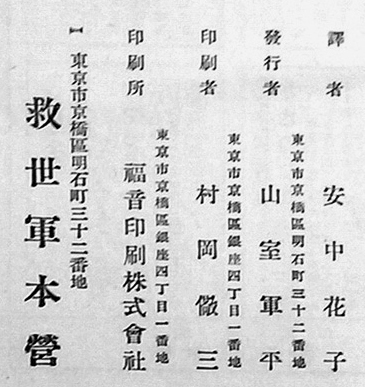 譯者 安中花子
東京市京橋區明石町三十二番地
發行者 山室軍平
東京市京橋區銀座四丁目一番地
印刷者 村岡儆三
東京市京橋區銀座四丁目一番地
印刷所 福音印刷株式會社
東京市京橋區明石町三十二番地
救世軍本營